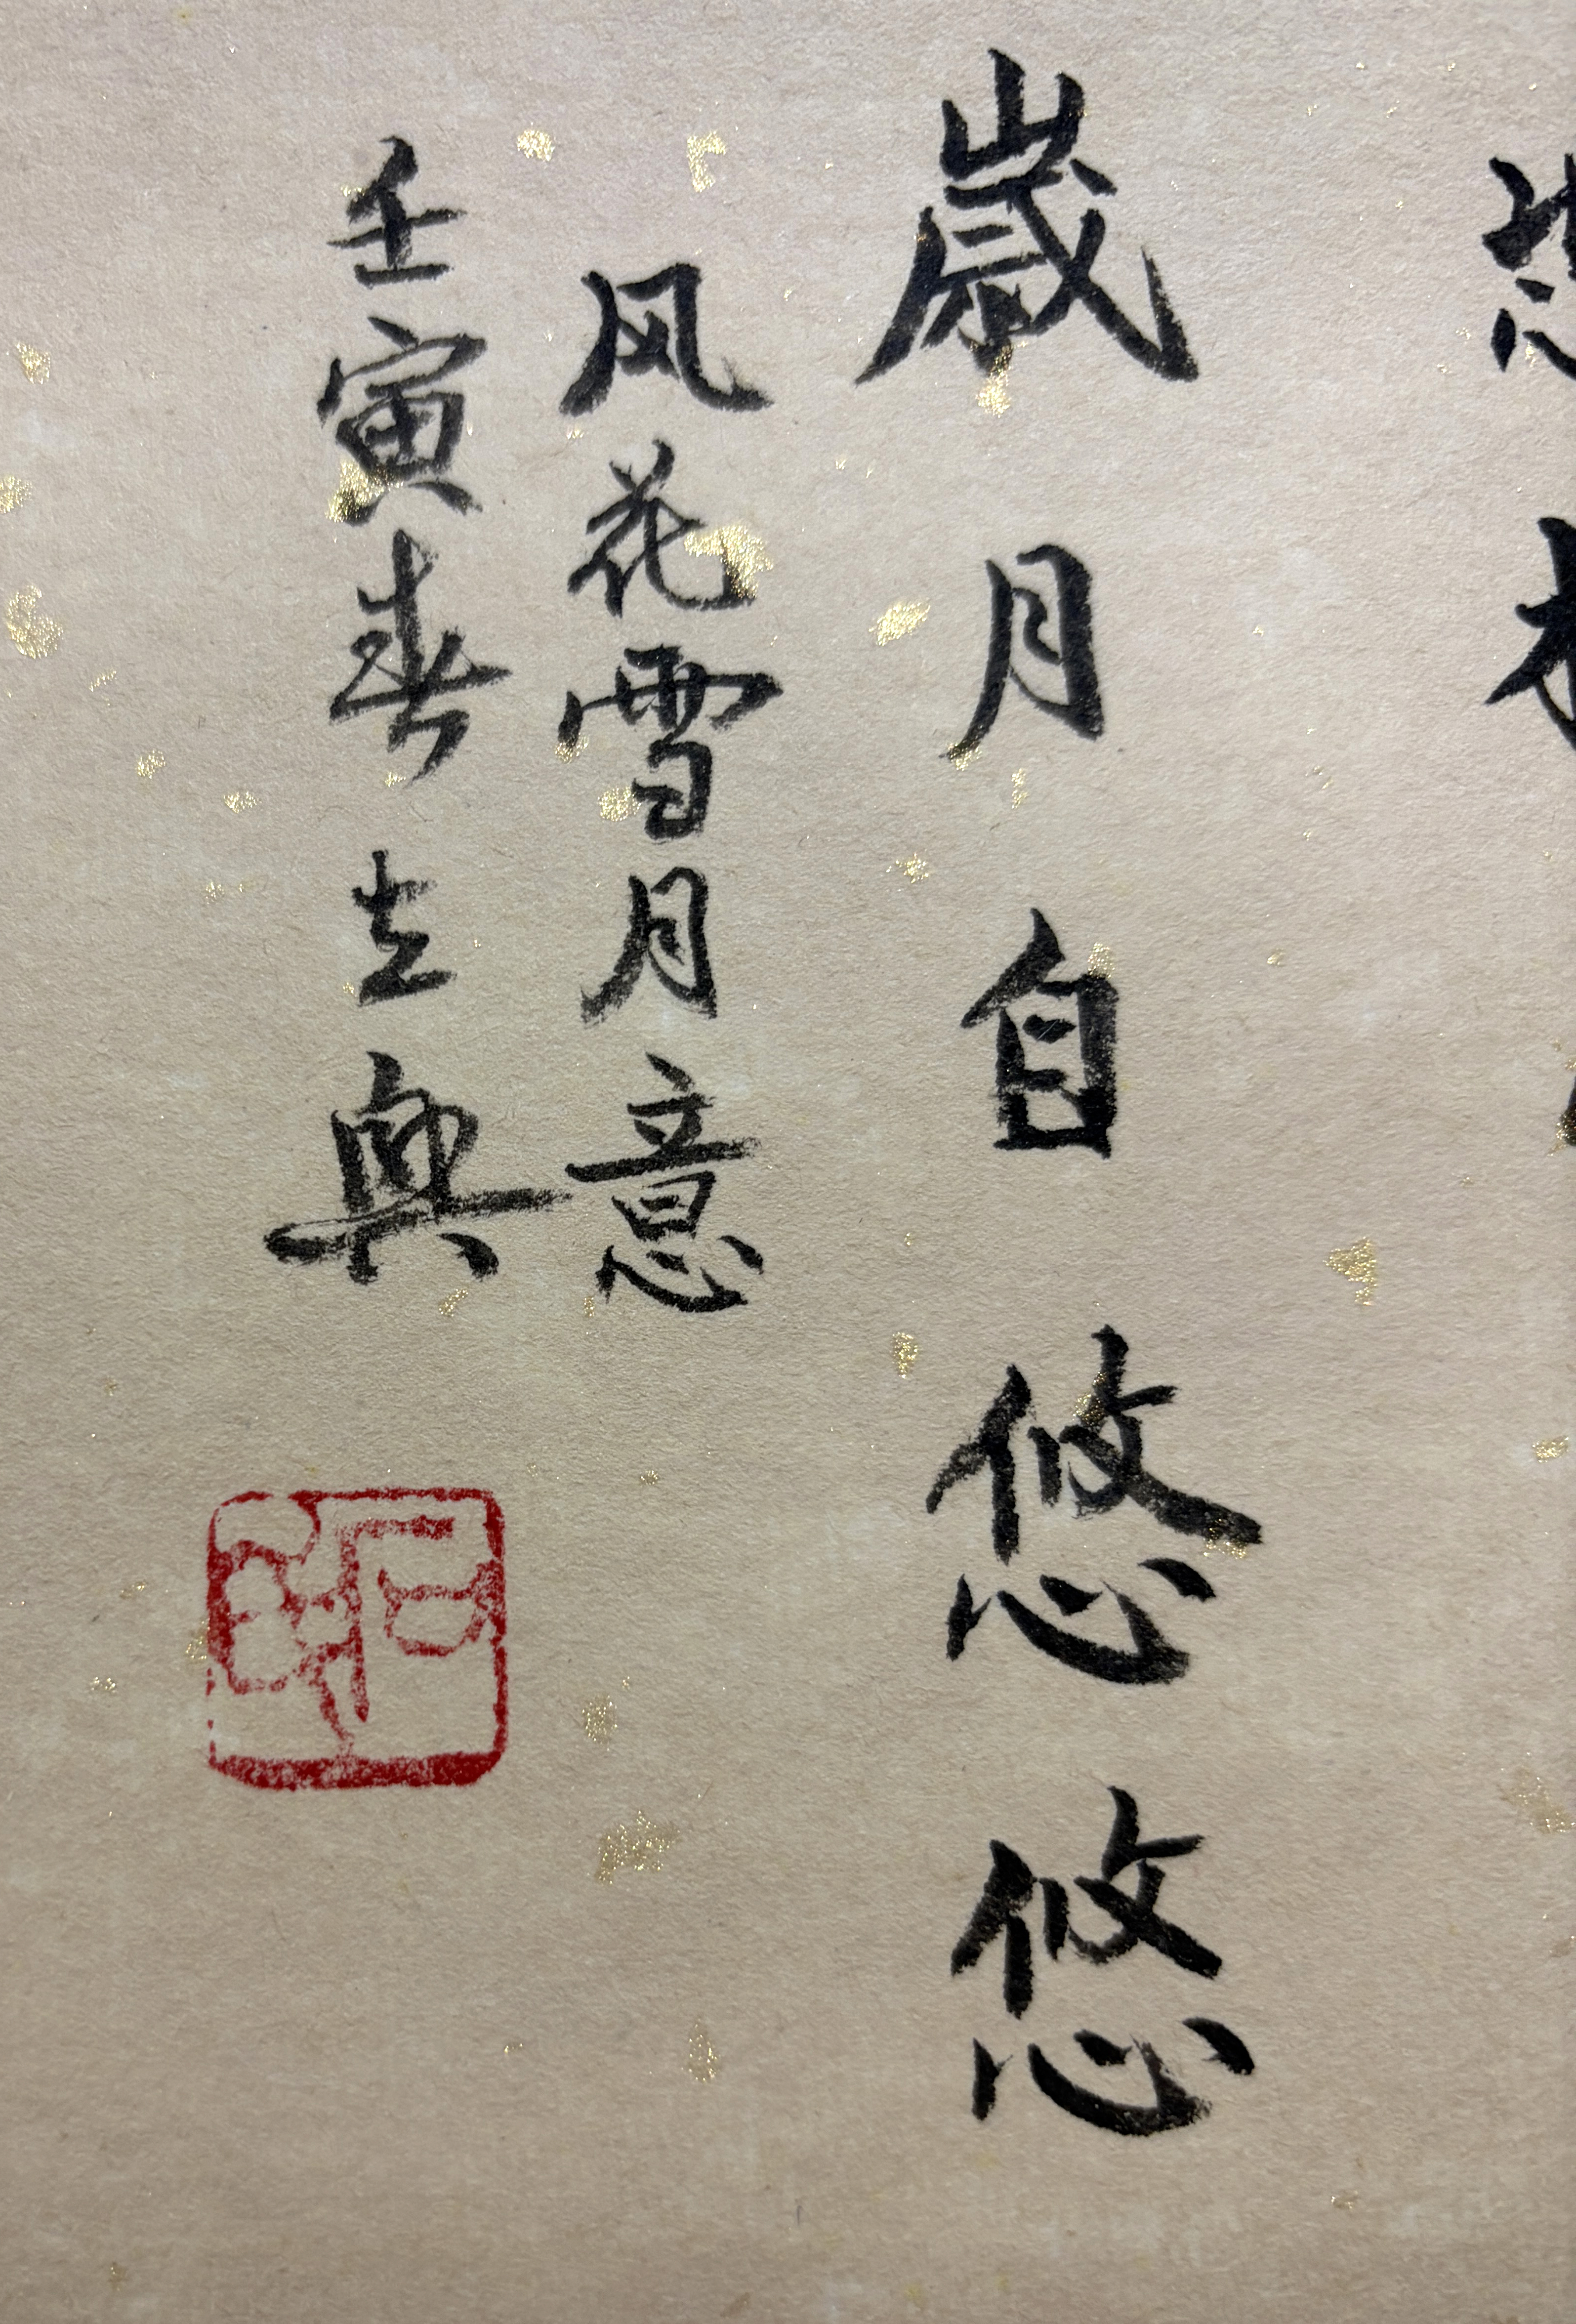 歲月自悠悠
风花雪月意
壬寅春立興